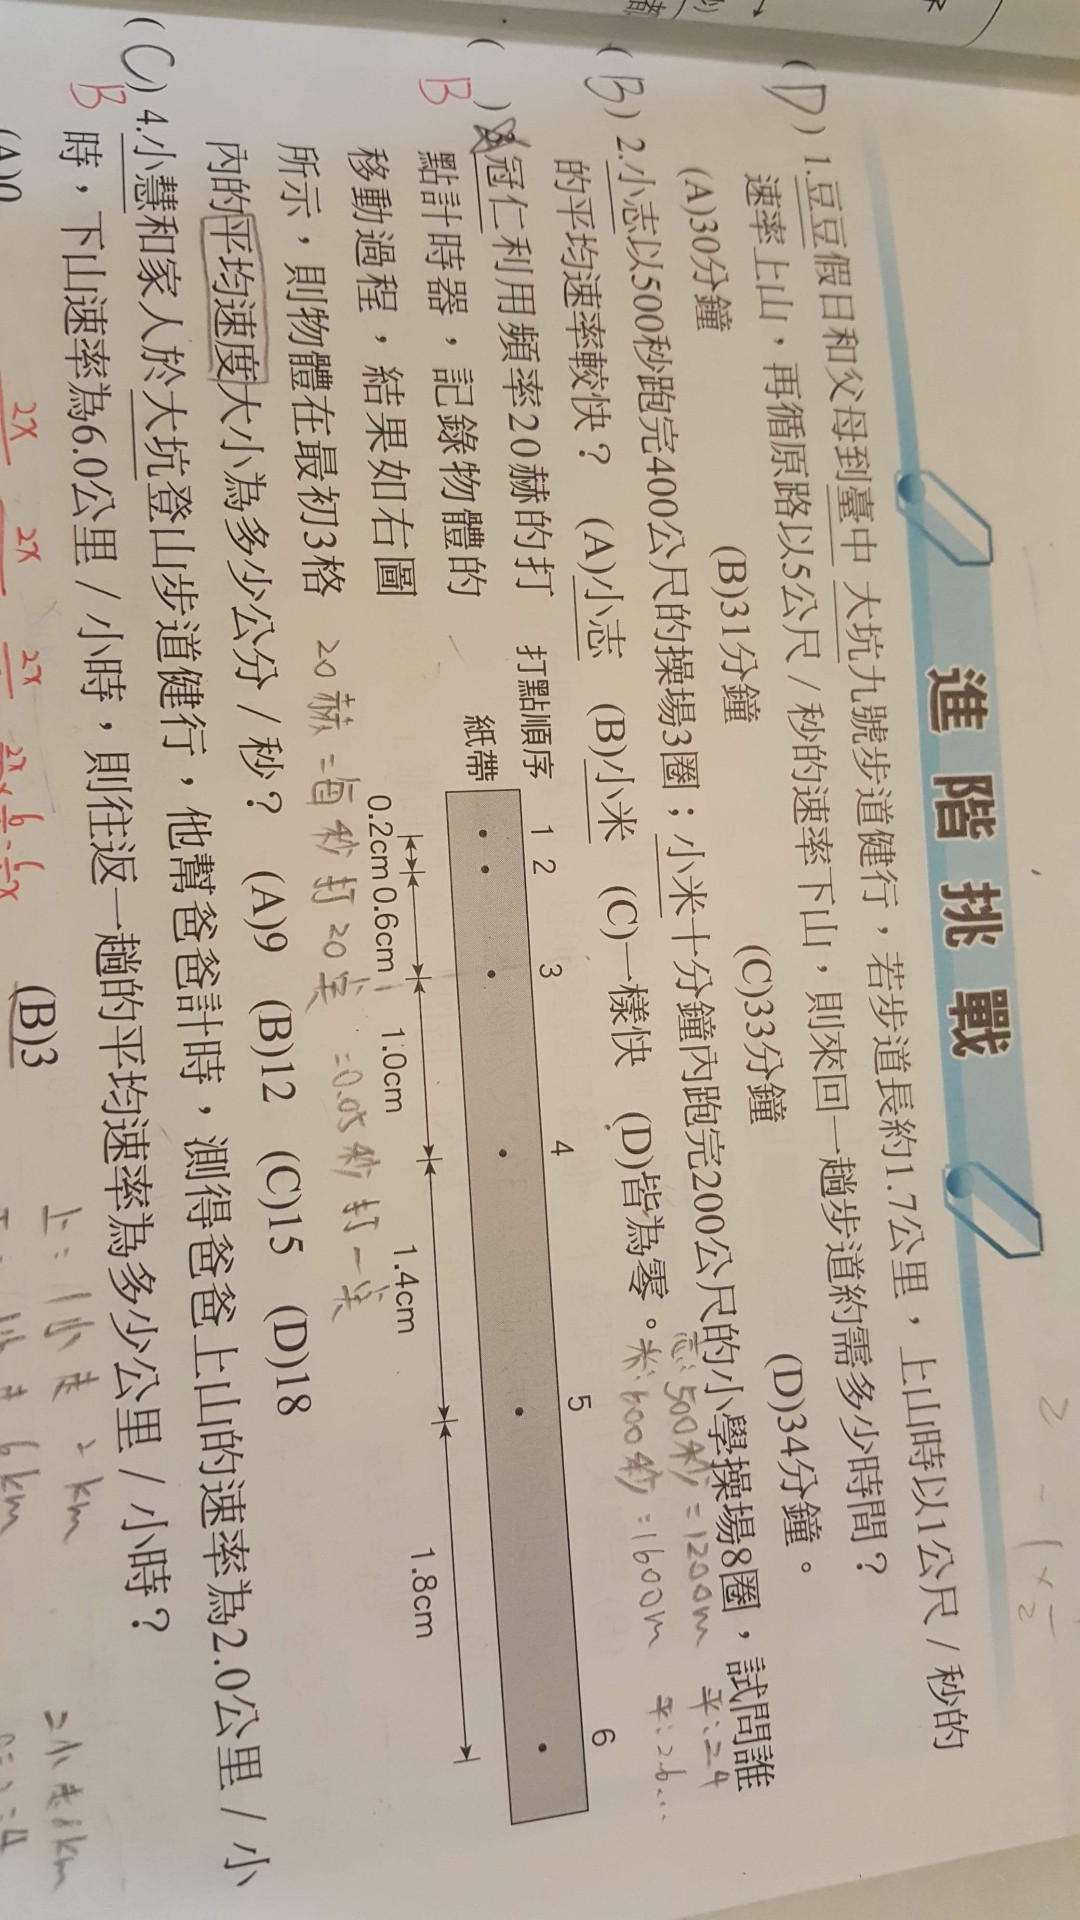 進階挑戰
(D) 1.豆豆假日和父母到臺中大坑九號步道健行，若步道長約1.7公里，上山時以1公尺／秒的
速率上山，再循原路以5公尺／秒的速率下山，則來回一趟步道約需多少時間？
(A)30分鐘 (B)31分鐘 (C)33分鐘 (D)34分鐘。
(B) 2.小志以500秒跑完400公尺的操場3圈；小米十分鐘內跑完200公尺的小學操場8圈，試問誰
的平均速率較快？ (A)小志 (B)小米 (C)一樣快 (D)皆為零。
志：500秒=1200m 平：2.4
米：600秒=1600m 平：2.6...
( ) 3.冠仁利用頻率20赫的打
B
點計時器，記錄物體的
移動過程，結果如右圖
所示，則物體在最初3格
內的平均速度大小為多少公分／秒？ (A)9 (B)12 (C)15 (D)18
打點順序 1 2 3 4 5 6
紙帶
0.2cm 0.6cm 1.0cm 1.4cm 1.8cm
20赫=每秒打20點 =0.05秒打一點
(C) 4.小慧和家人於大坑登山步道健行，他幫爸爸計時，測得爸爸上山的速率為2.0公里／小
B
時，下山速率為6.0公里／小時，則往返一趟的平均速率為多少公里／小時？
上：1小走2km
(B)3
6km